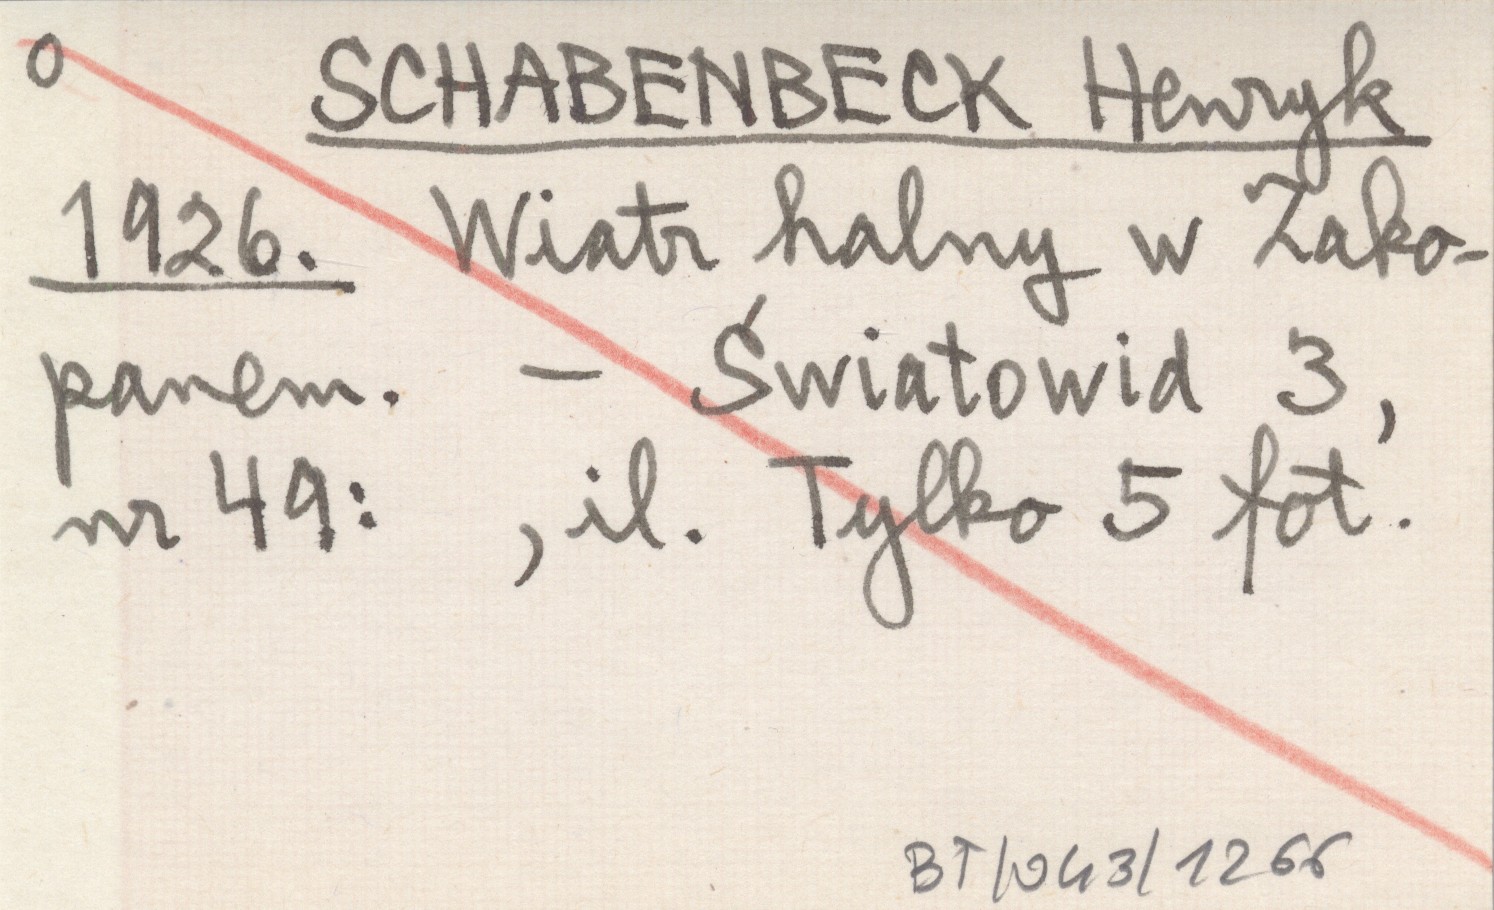 o SCHABENBECK Henryk
1926. Wiatr halny w Zako-
panem. – Światowid 3,
nr 49: , il. Tylko 5 fot.
BT/043/1266